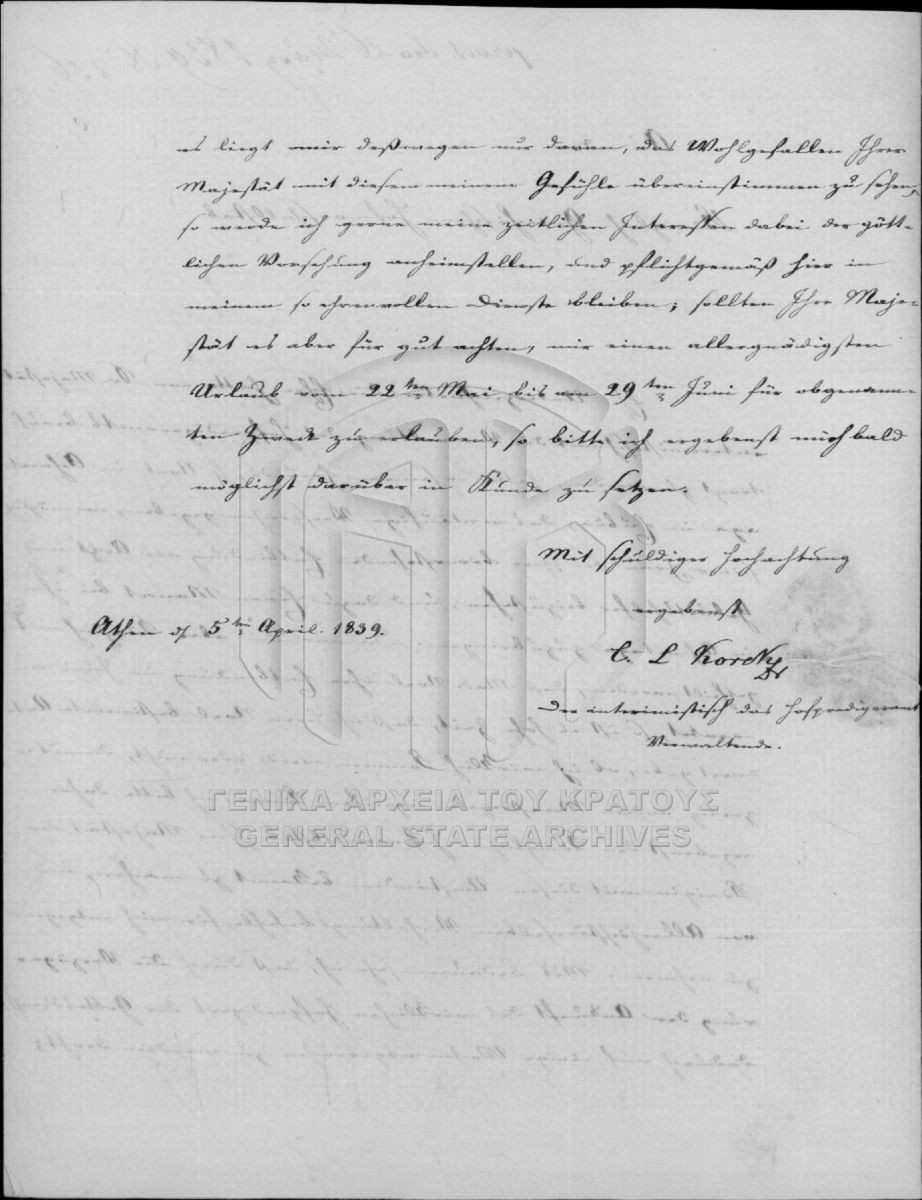 es liegt mir deßwegen nur daran, das Wohlgefallen Ihrer
Majestät mit diesem meinem Gefühle übereinstimmen zu sehen,
so werde ich gerne meine zeitlichen Interessen dabei der gött-
lichen Vorsehung anheimstellen, und pflichtgemäß hier in
meinem so ehrenvollen Dienste bleiben; sollten Ihre Maje-
stät es aber für gut achten, mir einen allergnädigsten
Urlaub vom 22ten Mai bis am 29ten Juni für obgenann-
ten Zweck zu erlauben, so bitte ich ergebenst mich bald
möglichst darüber in Kunde zu setzen.
Mit schuldiger Hochachtung
ergebenst
Athen d. 5ten April. 1839.
C. L Korck
Der interimistisch das Hofpredigeramt
Verwaltende.
ΓΕΝΙΚΑ ΑΡΧΕΙΑ ΤΟΥ ΚΡΑΤΟΥΣ
GENERAL STATE ARCHIVES